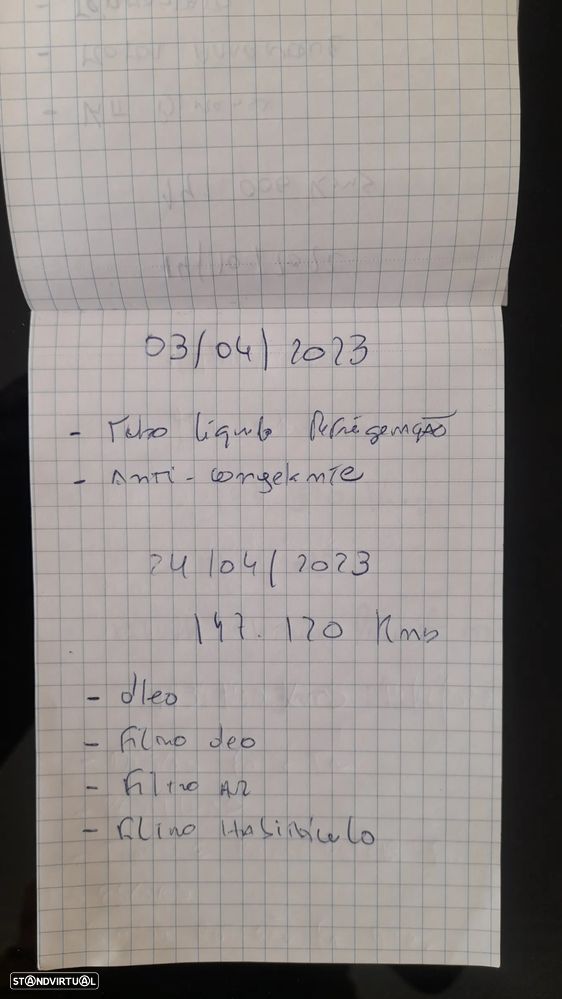 03/04/2023
- Tubo líquido Refrigeração
- Anti-congelante
24/04/2023
147.120 Kms
- óleo
- Filtro óleo
- Filtro Ar
- Filtro Habitáculo
STANDVIRTUAL